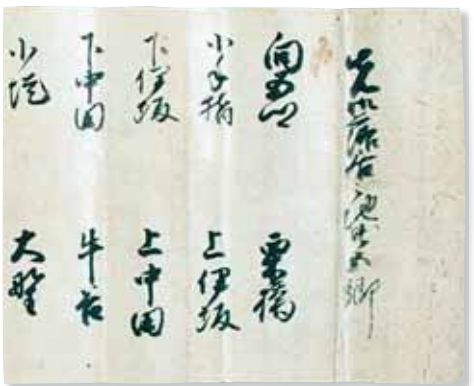 五郷
向五 栗橋
小手指 上伊坂
下伊坂 上中田
下中田 牛谷
小堤 大野